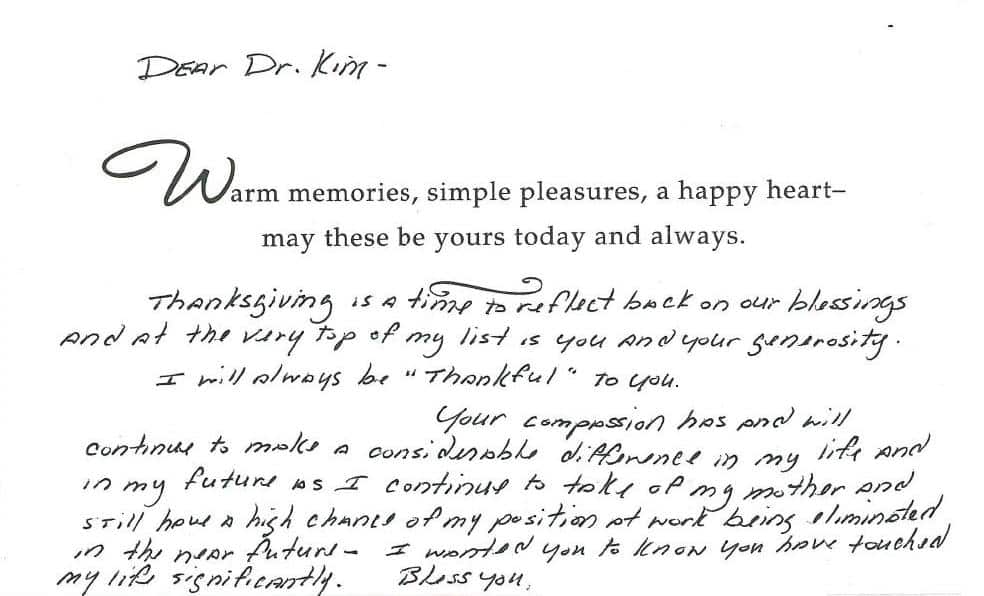 Dear Dr. Kim -
Warm memories, simple pleasures, a happy heart–
may these be yours today and always.
Thanksgiving is a time to reflect back on our blessings
and at the very top of my list is you and your generosity.
I will always be "Thankful" to you.
Your compassion has and will
continue to make a considerable difference in my life and
in my future as I continue to take of my mother and
still have a high chance of my position at work being eliminated
in the near future - I wanted you to know you have touched
my life significantly. Bless you,